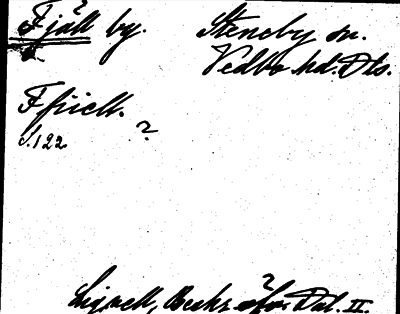 Fjäll by. Steneby sn.
Vedbo hd. Dls.
Ffiell.
S. 122. ?
Lignell, Beskr. öfver Dal. II.